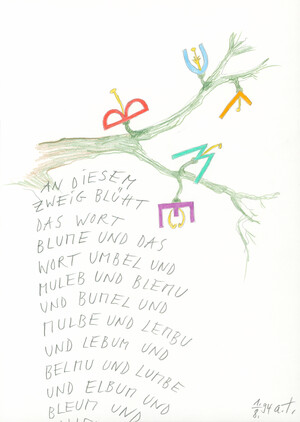 B
U
L
M
E
AN DiESEM
ZWEiG BLÜHT
DAS WORT
BLUME UND DAS
WORT UMBEL UND
MULEB UND BLEMU
UND BUMEL UND
MULBE UND LEMBU
UND LEBUM UND
BELMU UND LUMBE
UND ELBUM UND
BLEUM UND
8. 94 a.t.